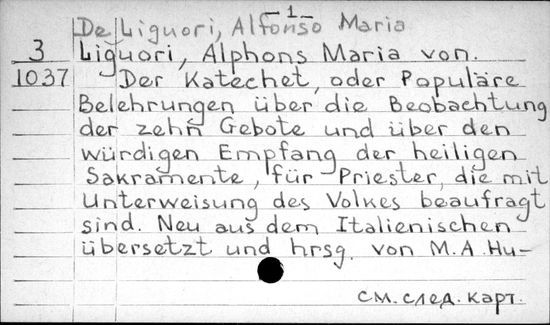 – 1 –
De Liguori, Alfonso Maria
3 Liguori, Alphons Maria von.
1037 Der Katechet, oder Populäre
Belehrungen über die Beobachtung
der zehn Gebote und über den
würdigen Empfang der heiligen
Sakramente, für Priester, die mit
Unterweisung des Volkes beaufragt
sind. Neu aus dem Italienischen
übersetzt und hrsg. von M.A. Hu-
см. след. карт.